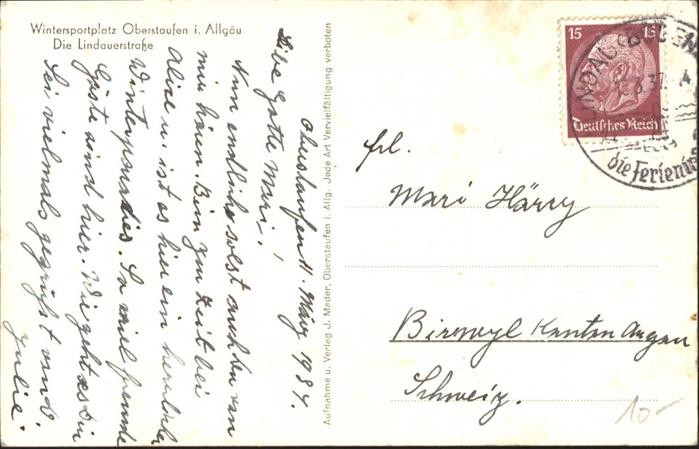 Wintersportplatz Oberstaufen i. Allgäu
Die Lindauerstraße
Oberstaufen 11. März 1937.
Liebe Gotte Mari!
Nun endlich sollst auch Du von
mir hören. Bin zur Zeit bei
Alice u. ist es hier ein herrliches
Winterparadies. So viel fremde
Gäste sind hier. Wie geht es Dir
Sei vielmals gegrüßt von
Julie.
Aufnahme u. Verlag J. Mader, Oberstaufen i. Allg. Jede Art Vervielfältigung verboten
15 15
Deutsches Reich
LINDAU (BODEN
37
die Ferieni
Frl.
Mari Härry
Birrwyl Kanton Argau
Schweiz.
10-